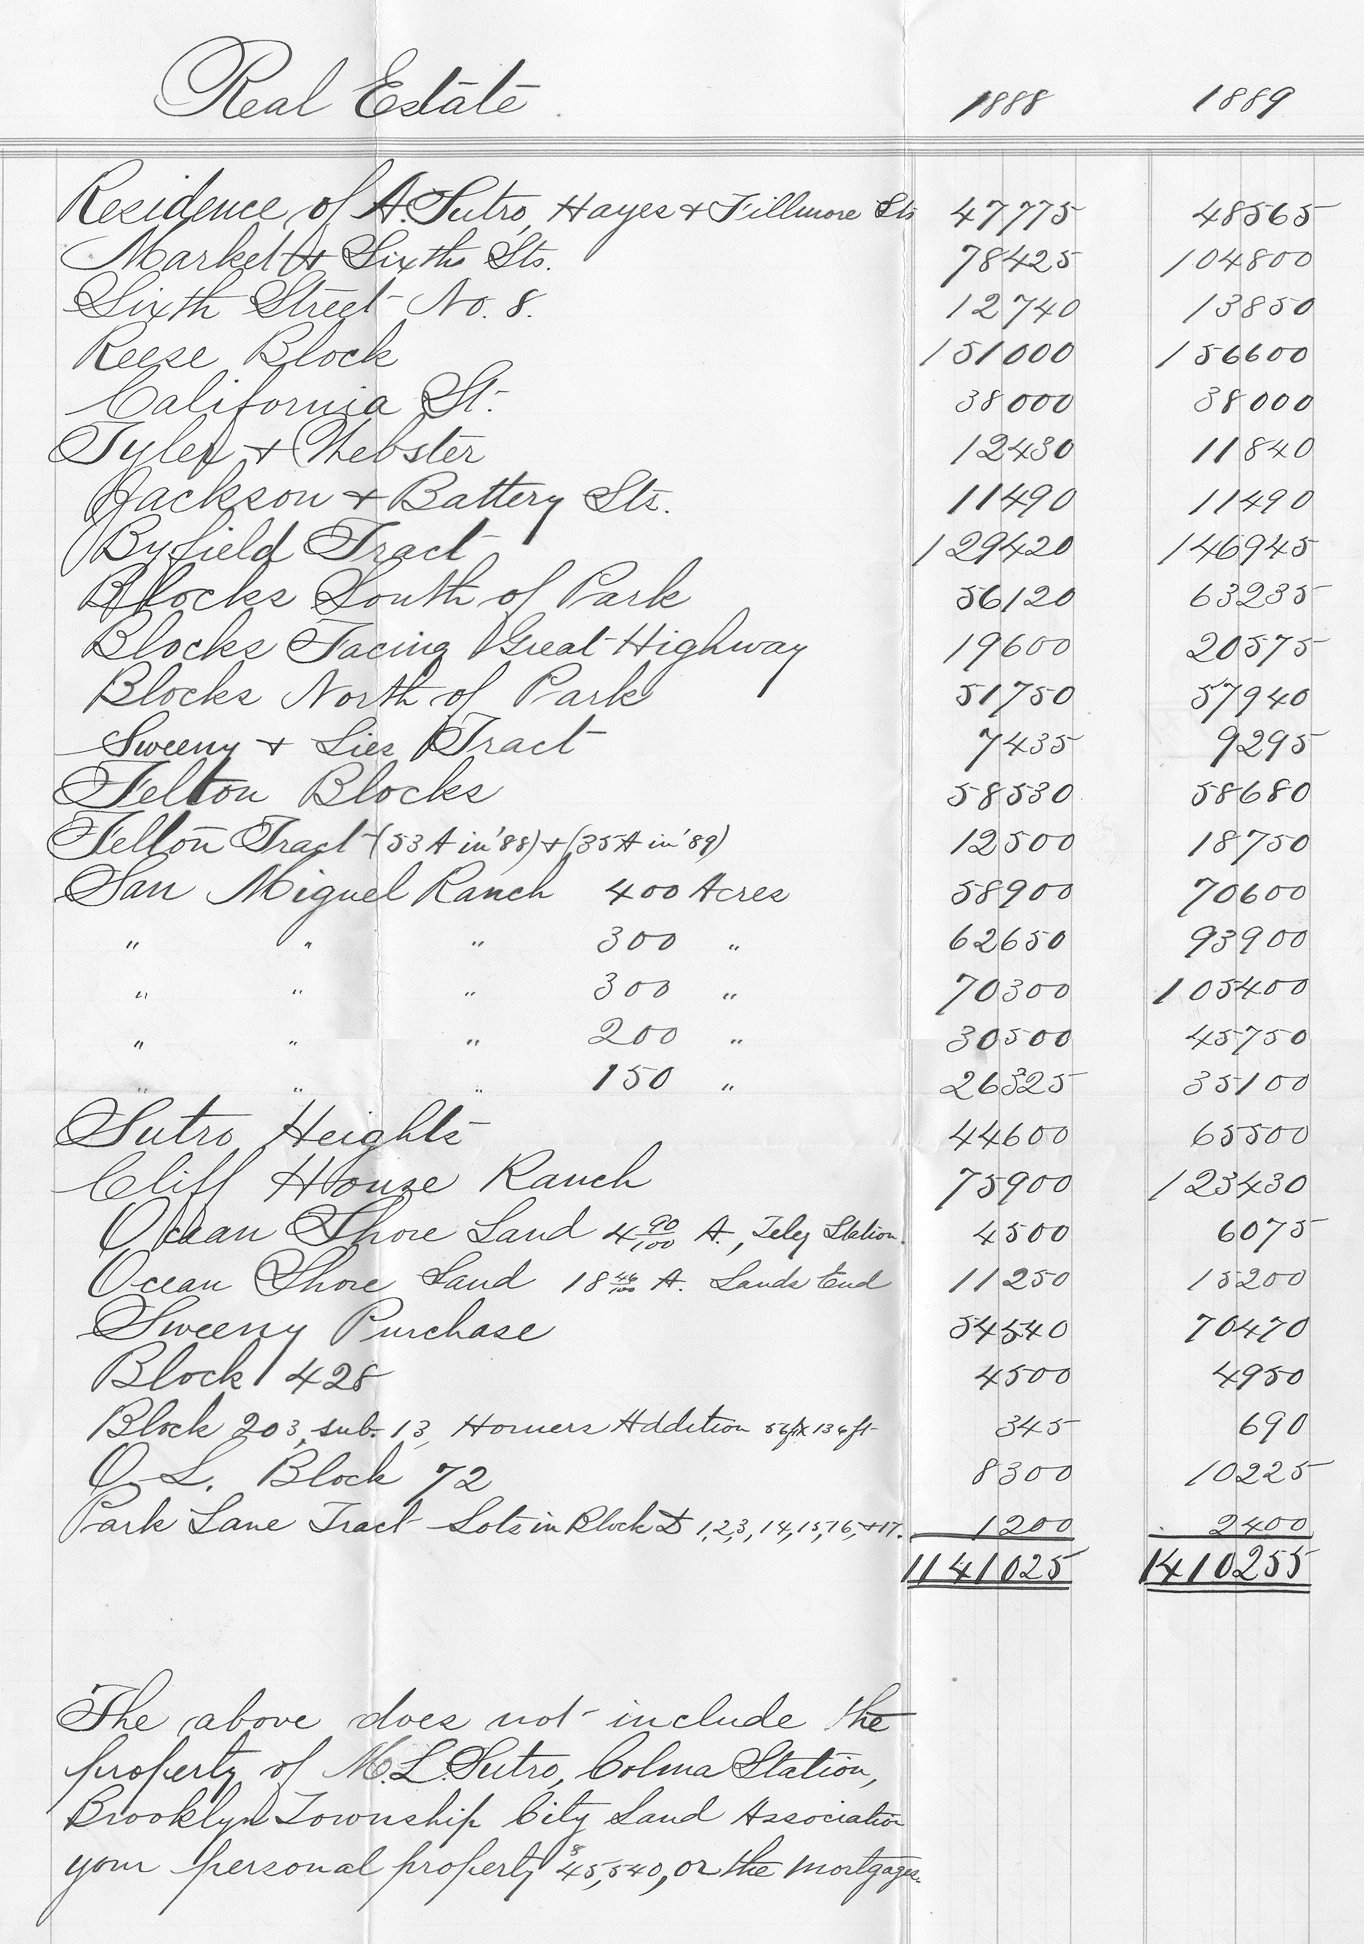 Real Estate 1888 1889
Residence of A. Sutro, Hayes & Fillmore Sts 47775 48565
Market & Sixths Sts. 78425 104800
Sixth Street No. 8. 12740 13850
Reese Block 151000 156600
California St. 38000 38000
Tyler & Webster 12430 11840
Jackson & Battery Sts. 11490 11490
Byfield Tract 129420 146945
Blocks South of Park 56120 63235
Blocks Facing Great Highway 19600 20575
Blocks North of Park 51750 57940
Sweeny & Lies Tract 7435 9295
Felton Blocks 58530 58680
Felton Tract (53 A in '88) & (35 A in '89) 12500 18750
San Miguel Ranch 400 Acres 58900 70600
" " " 300 " 62650 93900
" " " 300 " 70300 105400
" " " 200 " 30500 45750
" " " 150 " 26325 35100
Sutro Heights 44600 65500
Cliff House Ranch 75900 123430
Ocean Shore Land 4 90/100 A., Teleg Station. 4500 6075
Ocean Shore Land 18 46/100 A. Lands End 11250 15200
Sweeny Purchase 54540 70470
Block 428 4500 4950
Block 203, sub. 13, Horners Addition ft x 136 ft 345 690
O. L. Block 72 8300 10225
Park Lane Tract Lots in Block D 1, 2, 3, 14, 15, 16, & 17. 1200 2400
1141025 1410255
The above does not include the
property of M. L. Sutro, Colma Station,
Brooklyn Township City Land Association
your personal property $45,540, or the mortgages.